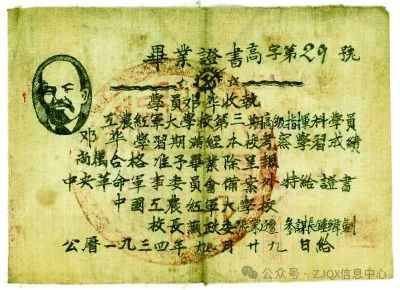 畢業證書高字第29號
學員鄧華收執
工農紅軍大學校第三期高級指揮科學員
鄧華學習期滿經本校考察學習成績
尚屬合格准予畢業除報
中央革命軍事委員會備案 特給證書
中國工農紅軍大學校
校長 政委張宗遜 參謀長鍾偉劍
公曆一九三四年九月廿九日給
公众号 · ZJQX信息中心